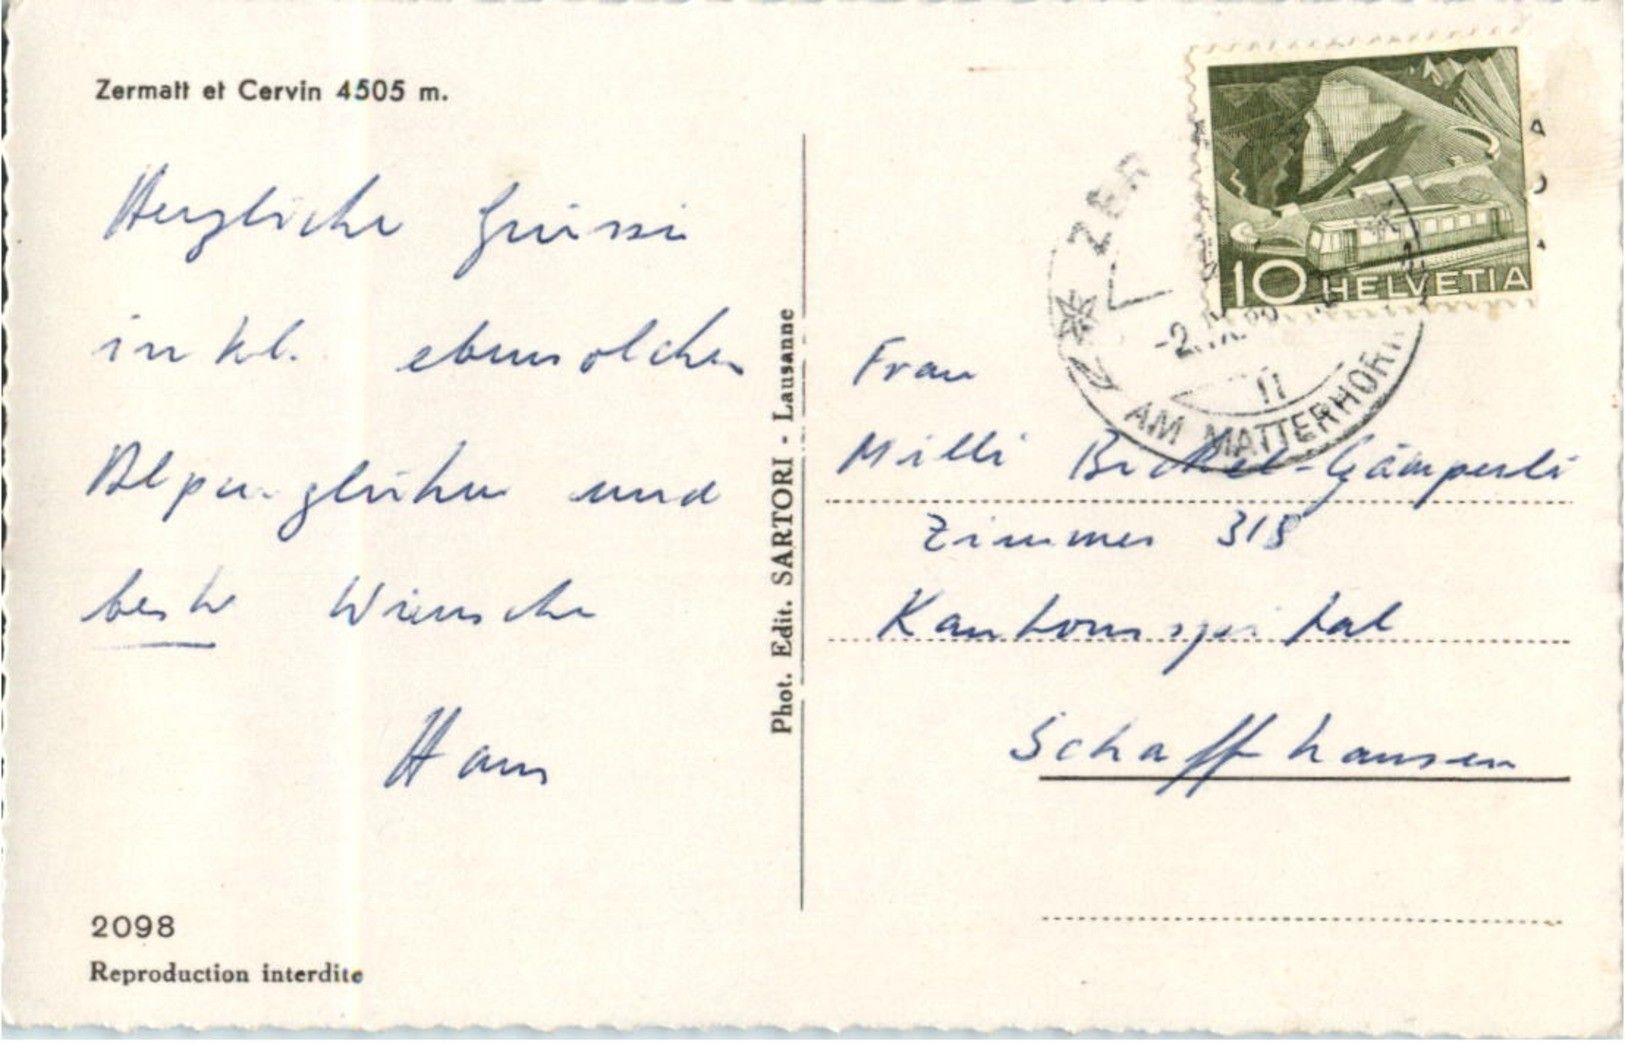 Zermatt et Cervin 4505 m.
Herzliche Grüsse
inkl. ebensolches
Alpenglühen und
beste Wünsche
Hans
2098
Reproduction interdite
Phot. Edit. SARTORI - Lausanne
10 HELVETIA
ZER
-2.IX.
11
AM MATTERHORN
Frau
Milli Bickel-Gämperli
Zimmer 318
Kantonsspital
Schaffhausen